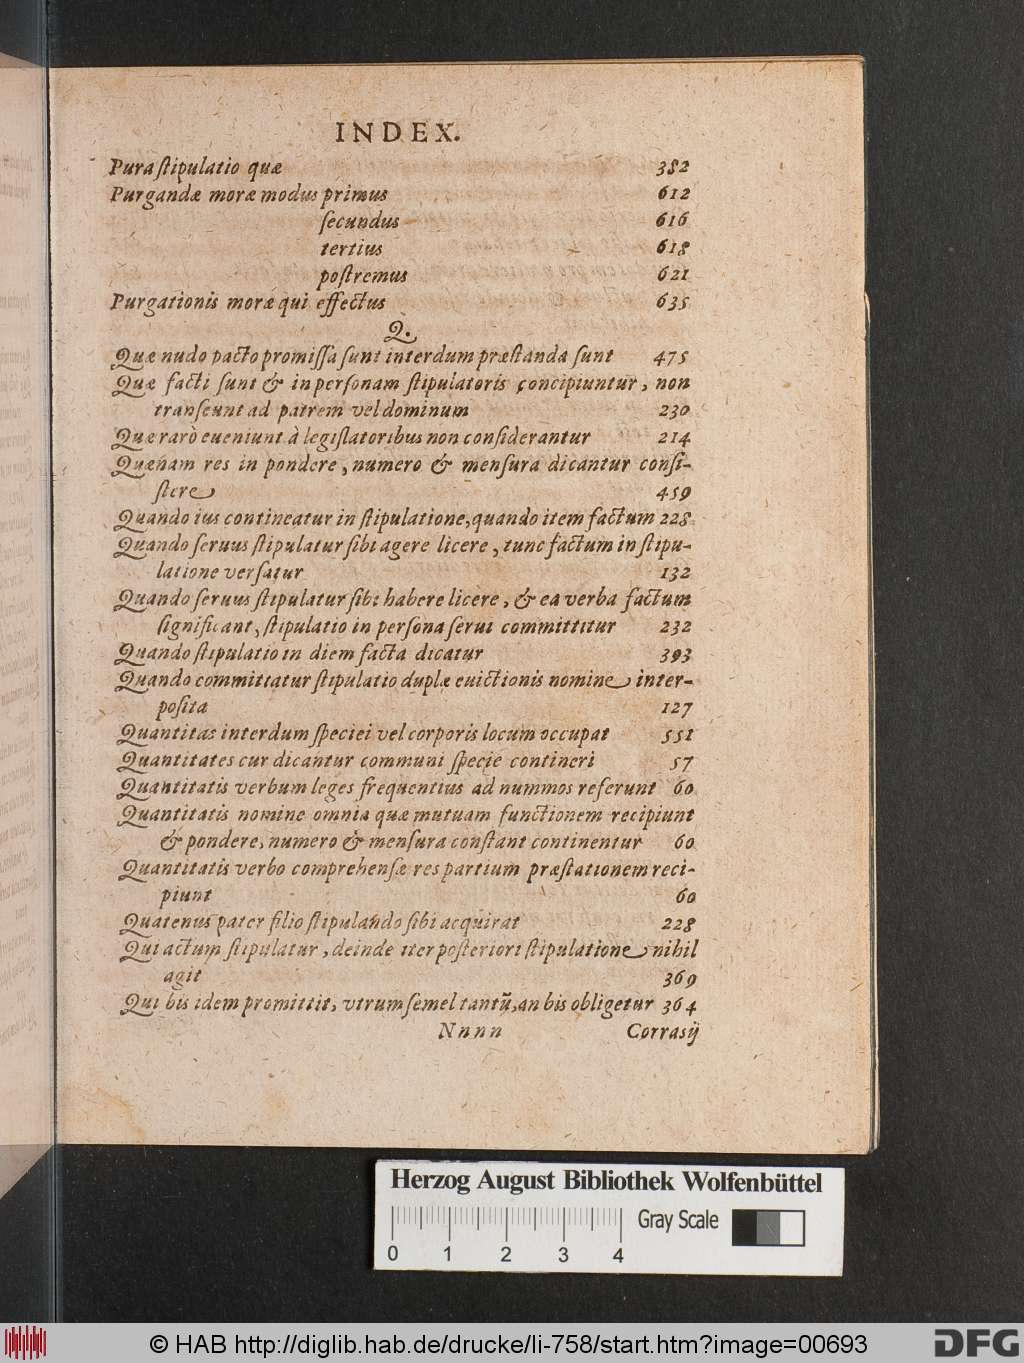 INDEX.
Pura ſtipulatio quæ 382
Purgandæ moræ modus primus 612
ſecundus 616
tertius 618
poſtremus 621
Purgationis moræ qui effectus 635
Q.
Quæ nudo pacto promiſſa ſunt interdum præſtanda ſunt 475
Quæ facti ſunt & in perſonam ſtipulatoris concipiuntur, non
tranſeunt ad patrem vel dominum 230
Quæ rarò eueniunt à legiſlatoribus non conſiderantur 214
Quænam res in pondere, numero & menſura dicantur conſi-
ſtere 459
Quando ius contineatur in ſtipulatione, quando item factum 228
Quando ſeruus ſtipulatur ſibi agere licere, tunc factum in ſtipu-
latione verſatur 132
Quando ſeruus ſtipulatur ſibi habere licere, & ea verba factum
ſignificant, ſtipulatio in perſona ſerui committitur 232
Quando ſtipulatio in diem facta dicatur 393
Quando committatur ſtipulatio duplæ euictionis nomine inter-
poſita 127
Quantitas interdum ſpeciei vel corporis locum occupat 551
Quantitates cur dicantur communi ſpecie contineri 57
Quantitatis verbum leges frequentius ad nummos referunt 60
Quantitatis nomine omnia quæ mutuam functionem recipiunt
& pondere, numero & menſura conſtant continentur 60
Quantitatis verbo comprehenſæ res partium præſtationem reci-
piunt 60
Quatenus pater filio ſtipulando ſibi acquirat 228
Qui actum ſtipulatur, deinde iter poſteriori ſtipulatione nihil
agit 369
Qui bis idem promittit, vtrum ſemel tantũ, an bis obligetur 364
Nnnn Corraſij
Herzog August Bibliothek Wolfenbüttel
Gray Scale
0 1 2 3 4
© HAB http://diglib.hab.de/drucke/li-758/start.htm?image=00693
DFG